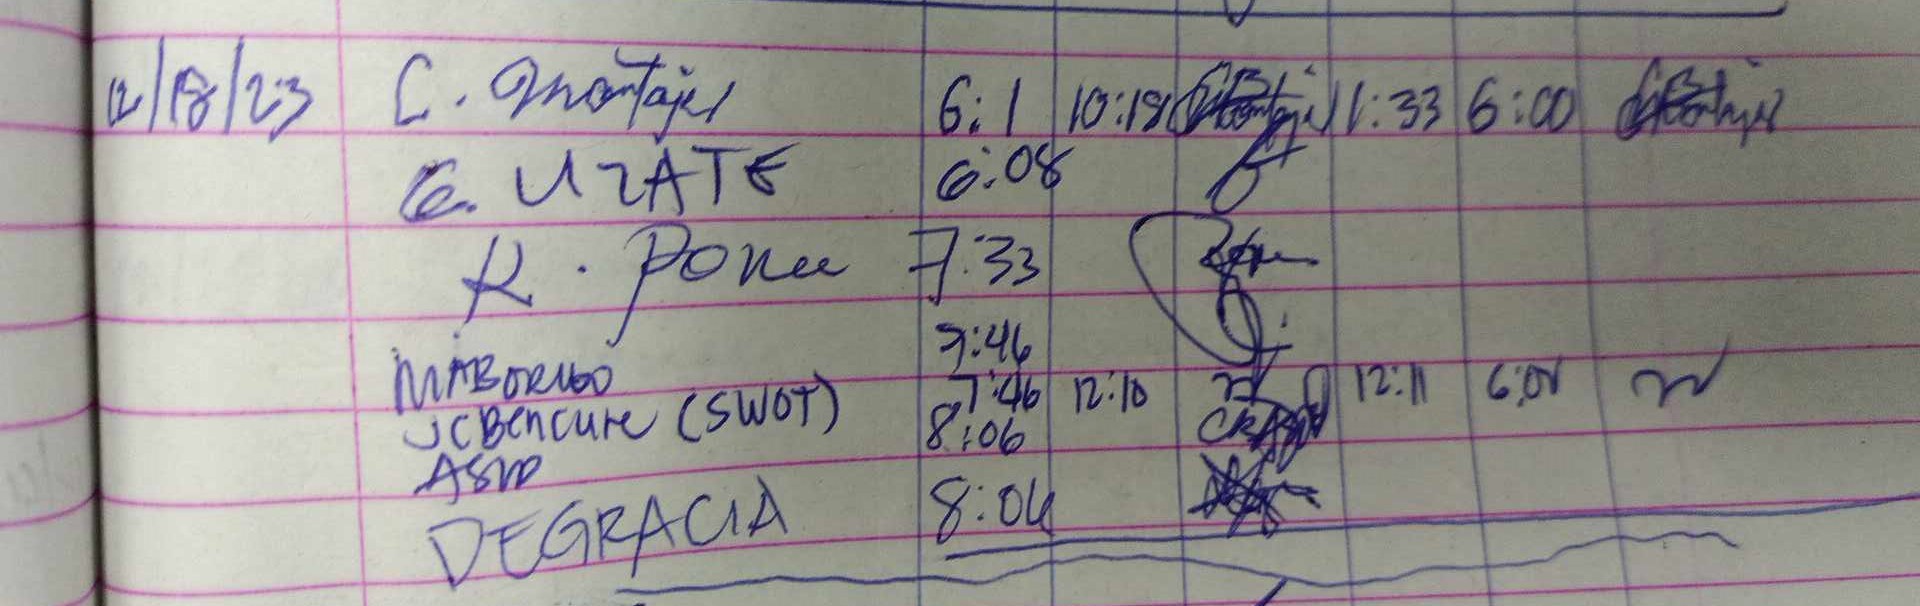 12/18/23 C. Montajes 6:1 10:18 1:33 6:00
G. UZATE 6:08
R. PONCE 7:33
7:46
MABORUBO 7:46 12:10 12:11 6:08
JCBENCURE (SWOT) 8:06
ASIO
DEGRACIA 8:06